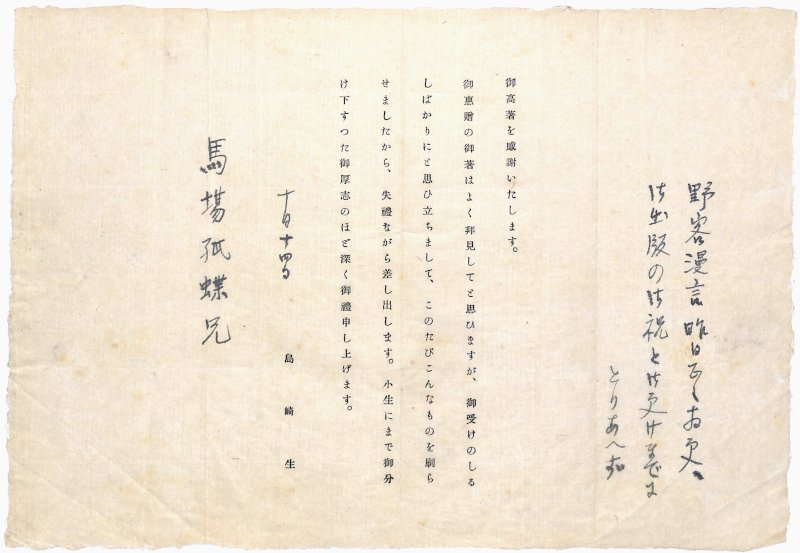 野客漫言昨日正にお受、
御出版の御祝と御受けまでに
とりあへず
御高著を感謝いたします。
御惠贈の御著はよく拜見してと思ひますが、御受けのしる
しばかりにと思ひ立ちまして、このたびこんなものを刷ら
せましたから、失禮ながら差し出します。小生にまで御分
け下すつた御厚志のほど深く御禮申し上げます。
十月十四日
島崎生
馬場孤蝶兄